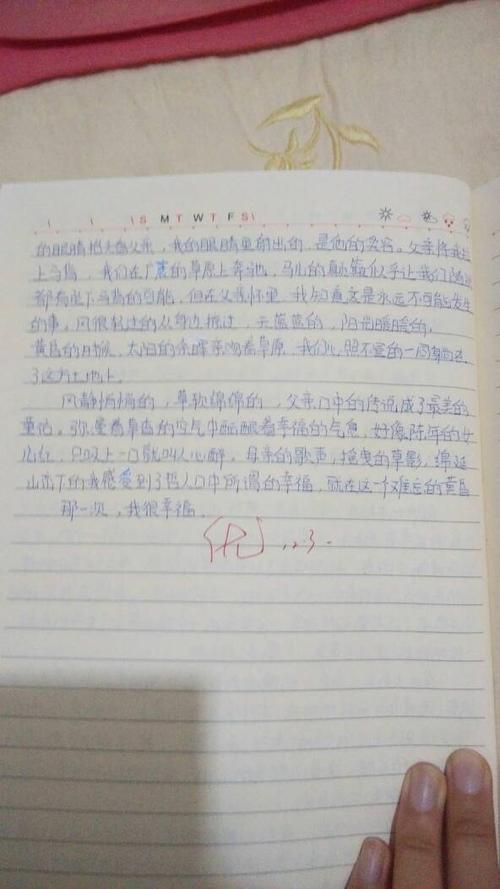 S M T W T F S
的眼睛抬头看父亲，我的眼睛里射出的，是他的笑容。父亲将我
上马背，我们在广袤的草原上奔驰，马儿的颠簸似乎让我们随时
都有坠下马背的可能，但在父亲怀里，我知道这是永远不可能发生
的事。风很轻过的从身边掠过，天蓝蓝的，阳光暖暖的，
黄昏的时候，太阳的余晖亲吻着草原，我们心照不宣的一同
了这方土地上。
风静悄悄的，草软绵绵的，父亲口中的传说成了最美的
童话。弥漫着草香的空气中酝酿着幸福的气息，好像陈年的女
儿红，只咬上一口就叫人心醉，母亲的歌声，摇曳的草影，绵延
山脉下的我感受到了哲人口中所谓的幸福，就在这一个难忘的黄昏
那一次，我很幸福。
优 12.3.